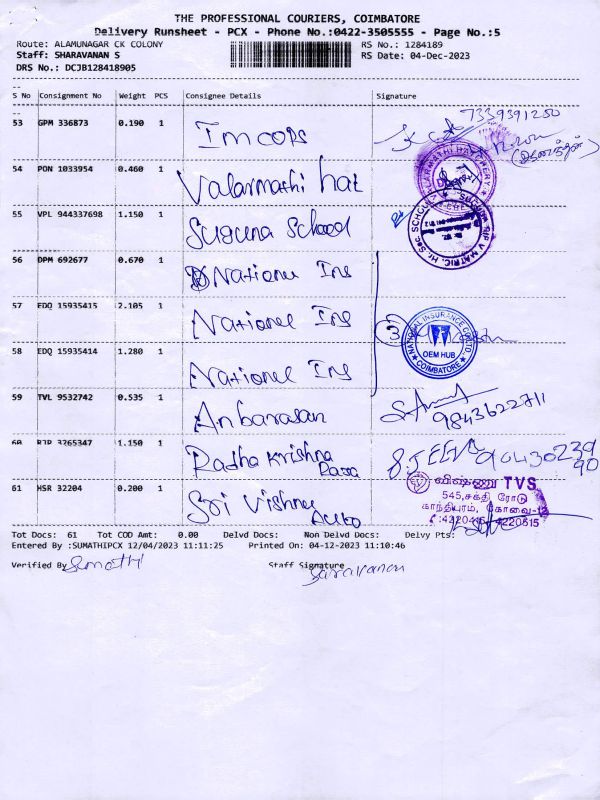 THE PROFESSIONAL COURIERS, COIMBATORE
Delivery Runsheet - PCX - Phone No.:0422-3505555 - Page No.:5
Route: ALAMUNAGAR CK COLONY RS No.: 1284189
Staff: SHARAVANAN S RS Date: 04-Dec-2023
DRS No.: DCJB128418905
S No Consignment No Weight PCS Consignee Details Signature
53 GPM 336873 0.190 1 Imcops 7339391250
54 PON 1033954 0.460 1 Valarmathi hat
VALARMATHI HATCHERY
55 VPL 944337698 1.150 1 Suguna School
56 DPM 692677 0.670 1 National Ins
57 EDQ 15935415 2.105 1 National Ins 3
NATIONAL INSURANCE CO. LTD.
OEM HUB
COIMBATORE
58 EDQ 15935414 1.280 1 National Ins
59 TVL 9532742 0.535 1 Anbarasan 9843622711
60 RJP 3265347 1.150 1 Radha Krishna
Raja
61 HSR 32204 0.200 1 Sri Vishnu
Auto
விஷ்ணு TVS
545,சக்தி ரோடு
காந்திபுரம், கோவை-12
Tot Docs: 61 Tot COD Amt: 0.00 Delvd Docs: Non Delvd Docs: Delvy Pts:
Entered By :SUMATHIPCX 12/04/2023 11:11:25 Printed On: 04-12-2023 11:10:46
Verified By Sumathi Staff Signature Saravanan